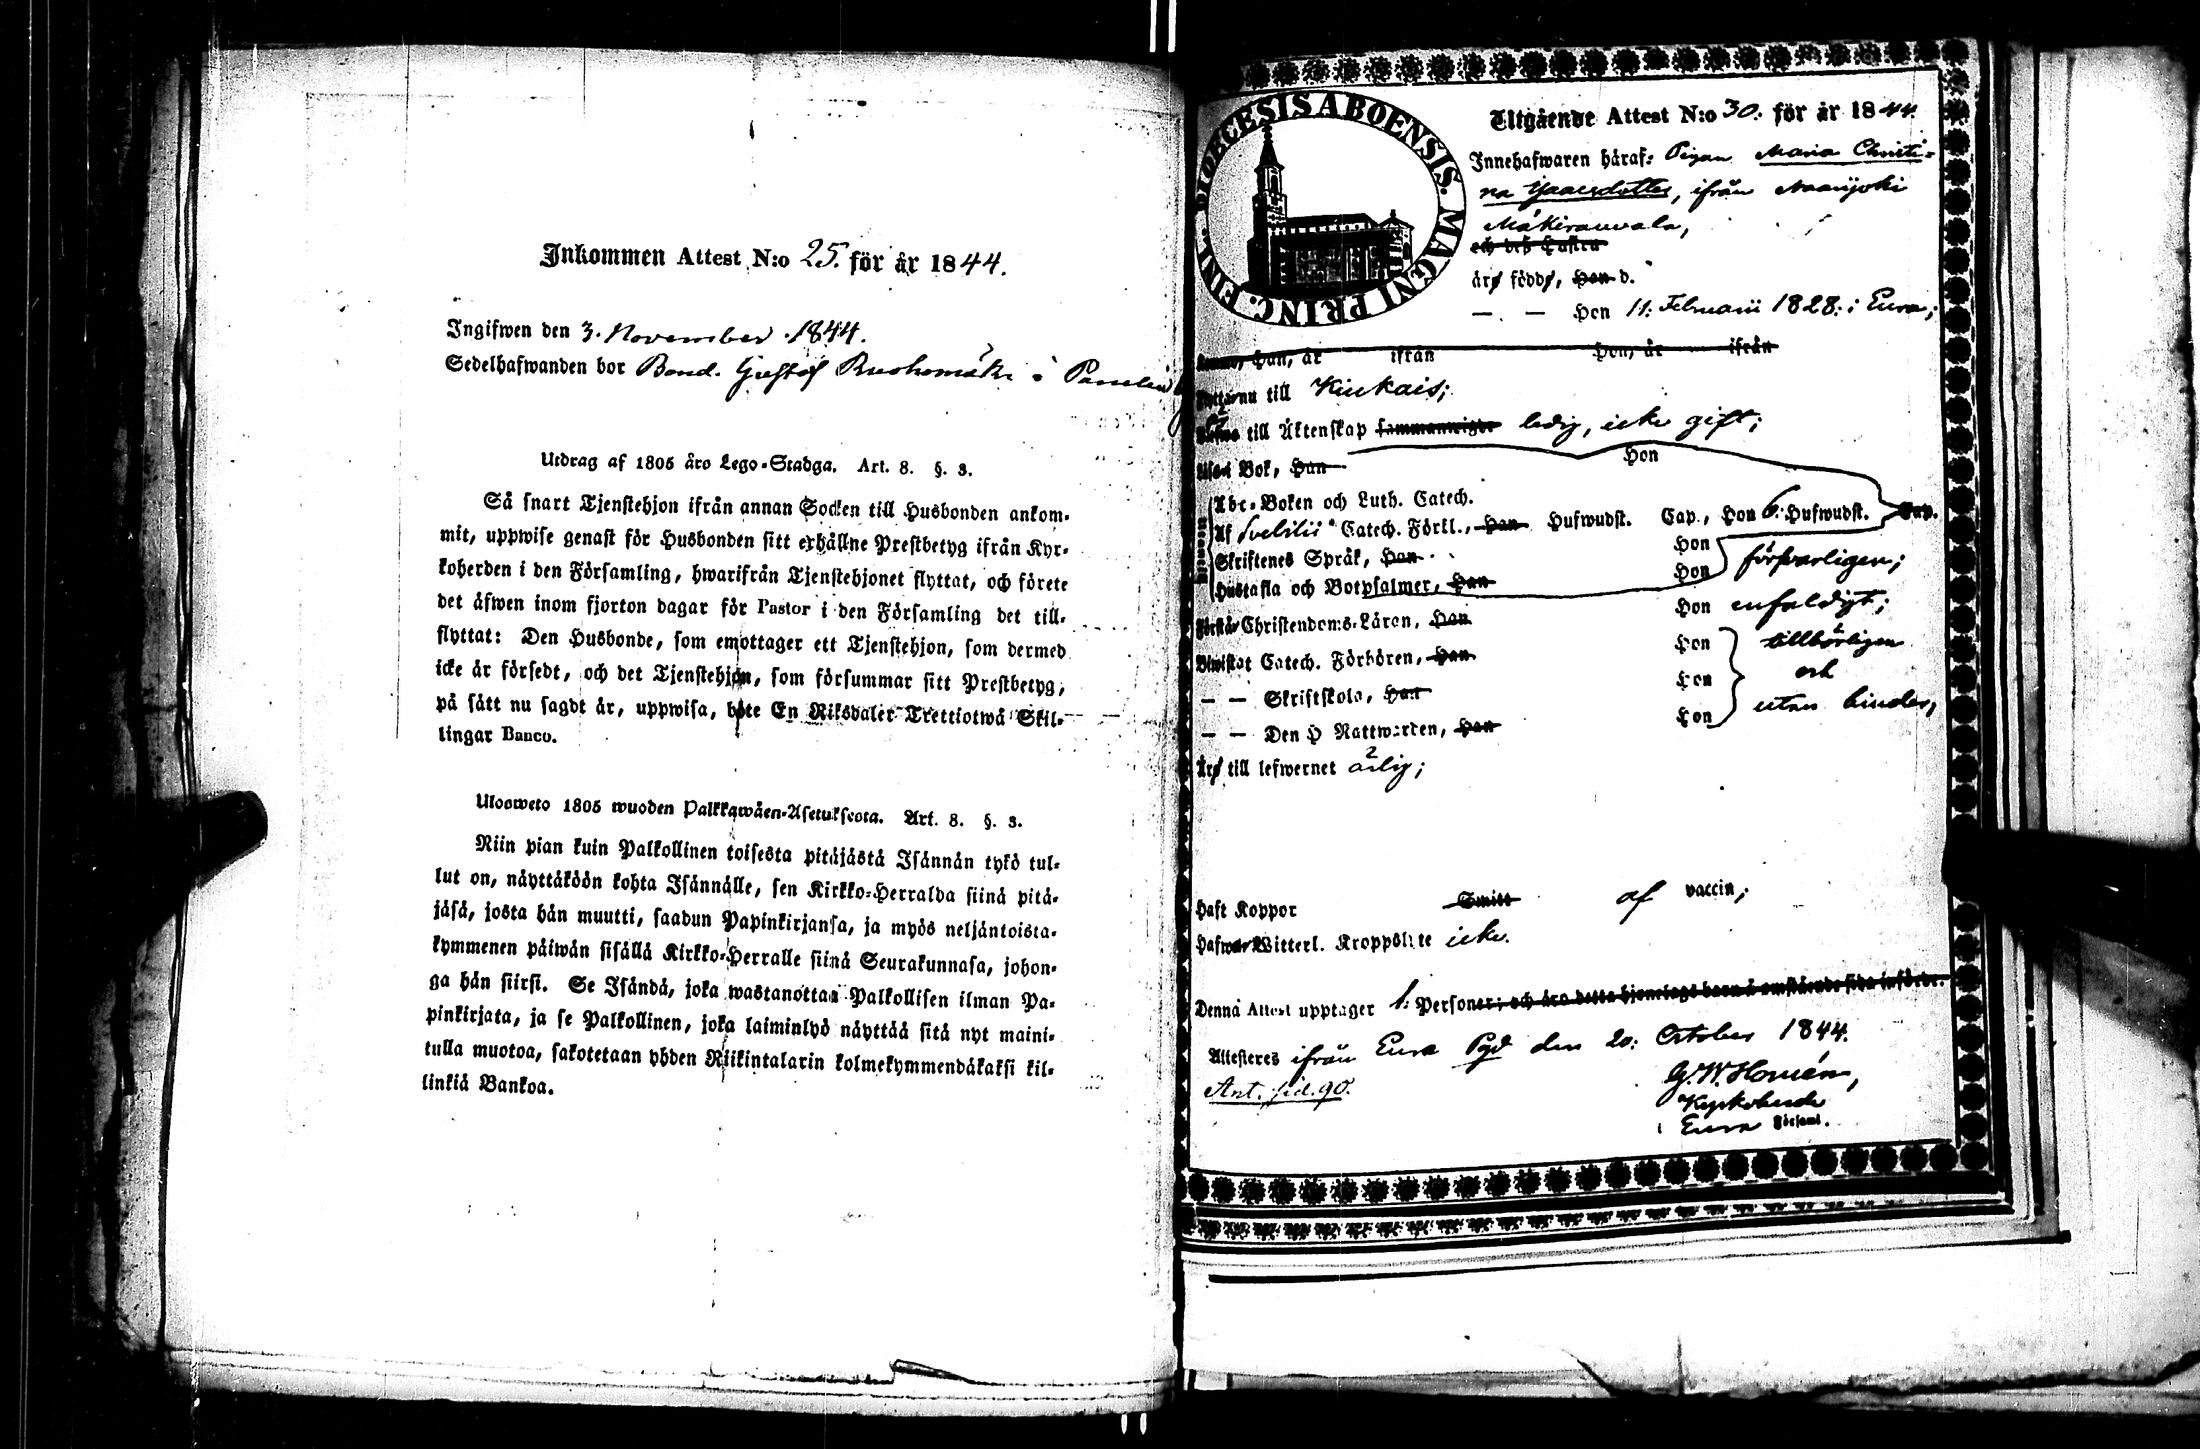 Inkommen Attest N:o 25. för år 1844.
Ingifwen den 3. November 1844.
Sedelhafwanden bor Bond. Gustaf Ruohomäki i Panelia
Utdrag af 1805 års Lego-Stadga. Art. 8. §. 3.
Så snart Tjenstehjon ifrån annan Socken till Husbonden ankom-
mit, uppwise genast för Husbonden sitt erhållne Prestbetyg ifrån Kyr-
koherden i den Församling, hwarifrån Tjenstehjonet flyttat, och förete
det äfwen inom fjorton dagar för Pastor i den Församling det till-
flyttat: Den Husbonde, som emottager ett Tjenstehjon, som dermed
icke är försedt, och det Tjenstehjon, som försummar sitt Prestbetyg,
på sätt nu sagdt är, uppwisa, böte En Riksdaler Trettiotwå Skil-
lingar Banco.
Ulosweto 1805 wuoden Palkkawäen-Asetuksesta. Art. 8. §. 3.
Niin pian kuin Palkollinen toisesta pitäjästä Isännän tykö tul-
lut on, näyttäköön kohta Isännälle, sen Kirkko-Herralda siinä pitä-
jäsä, josta hän muutti, saadun Papinkirjansa, ja myös neljäntoista-
kymmenen päiwän sisällä Kirkko-Herralle siinä Seurakunnasa, johon-
ga hän siirsi. Se Isändä, joka wastanottaa Palkollisen ilman Pa-
pinkirjata, ja se Palkollinen, joka laiminlyö näyttää sitä nyt maini-
tulla muotoa, sakotetaan yhden Riikintalarin kolmekymmendäkaksi kil-
linkiä Bankoa.
DIOECESIS ABOENSIS. MAGNI PRINC. FINL.
Utgående Attest N:o 30. för år 1844.
Innehafwaren häraf: Pigan Maria Christi-
na Isaacsdotter, ifrån Naarijoki
Mäkirauvala,
och dess Hustru
äro födde, Han d.
— — Hon 11. Februarii 1828. i Eura;
Han, år ifrån Hon, år ifrån
nu till Kiukais;
till Äktenskap sammanwigde ledig, icke gift;
Bok, Han Hon
Abc-Boken och Luth. Catech.
Af Svebilii Catech. Förkl., Han Hufwudst. Cap., Hon 6. Hufwudst. Cap.
Skriftenes Språk, Han Hon
Hustafla och Botpsalmer, Han Hon försvarligen;
Förstår Christendoms-Läran, Han Hon enfaldigt;
Biwistat Catech. Förhören, Han Hon tillbörligen
— — Skriftskola, Han Hon och
— — Den H Nattwarden, Han Hon utan hinder,
Äro till lefwernet ärlig;
Haft Koppor Smitt af vaccin;
Witterl. Kroppslyte icke.
Denna Attest upptager 1. Personer; och äro detta hjonelags barn å omstående sida införde.
Attesteres ifrån Eura Pgd den 20. October 1844.
Ant. sid. 90.
G. W. Homén,
Kyrkoherde
i Eura Församl.